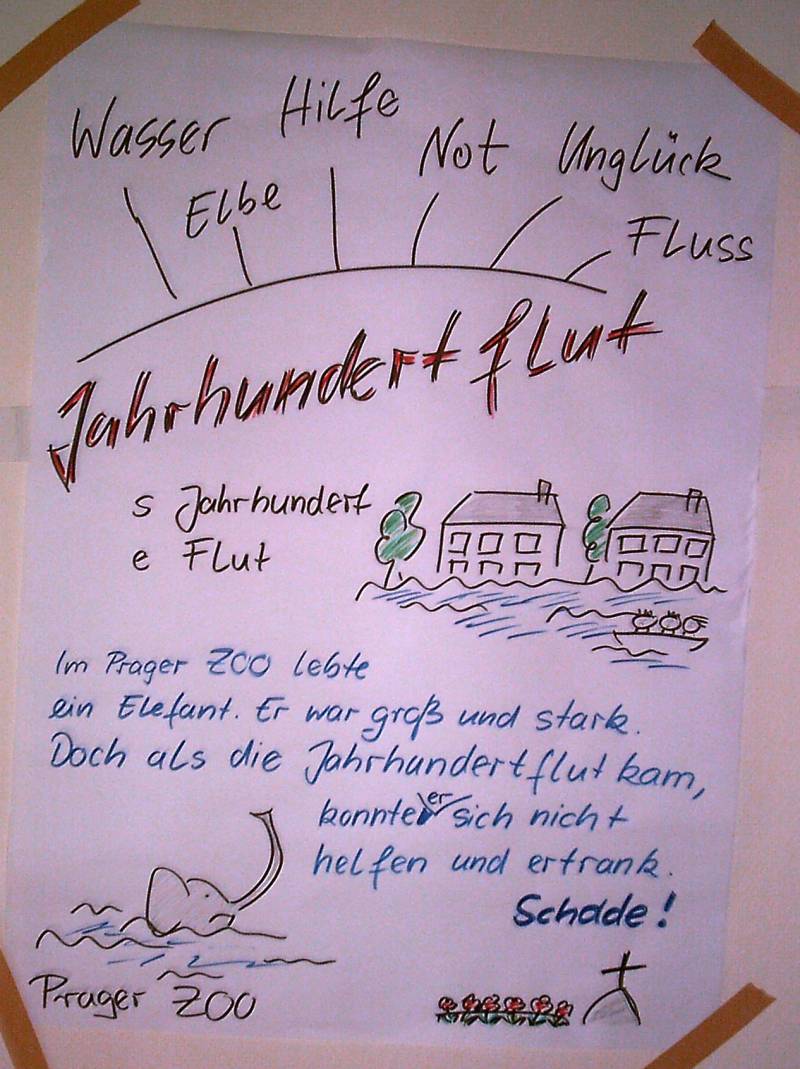 Wasser Hilfe Not Unglück
Elbe Fluss
Jahrhundertflut
s Jahrhundert
e Flut
Im Prager ZOO lebte
ein Elefant. Er war groß und stark.
Doch als die Jahrhundertflut kam,
konnte er sich nicht
helfen und ertrank.
Schade!
Prager ZOO